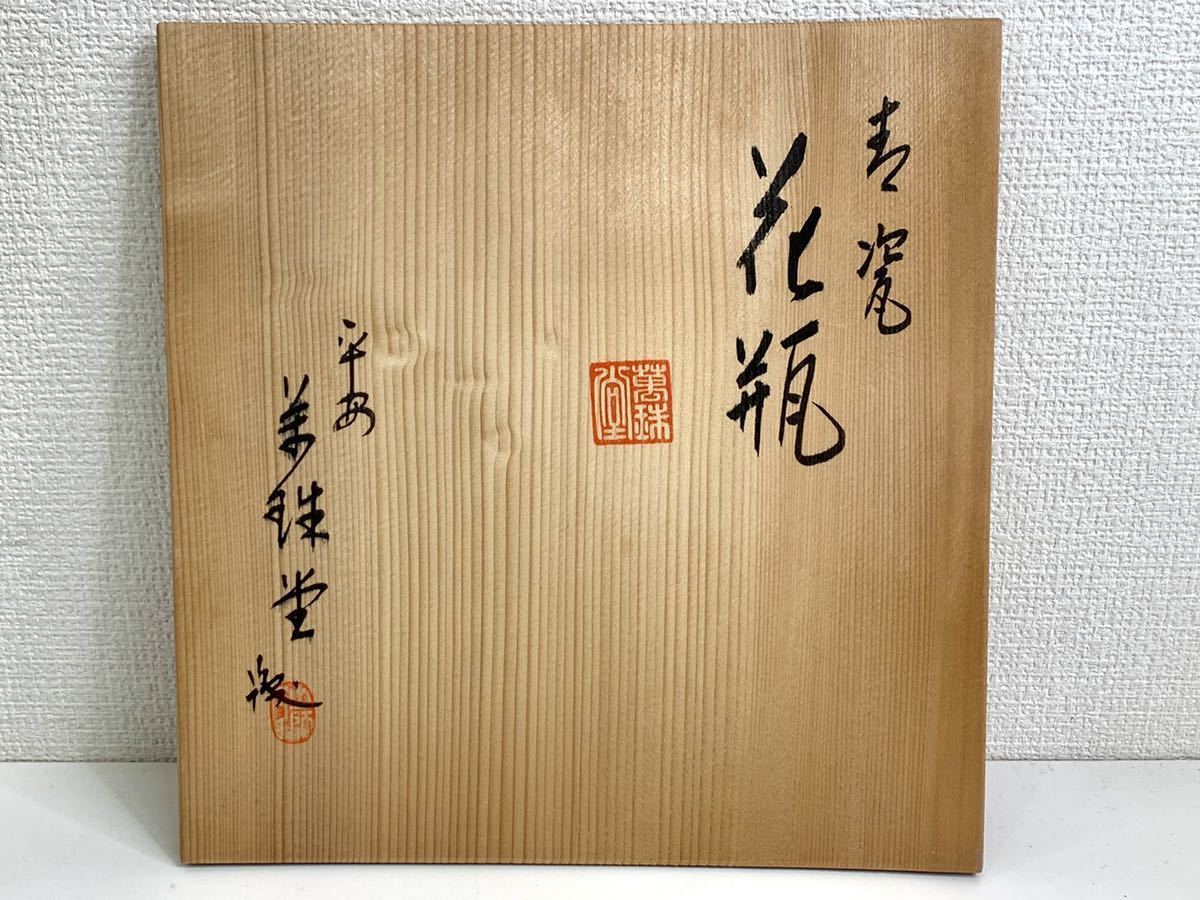 青瓷
花瓶
萬珠堂
平安
萬珠堂